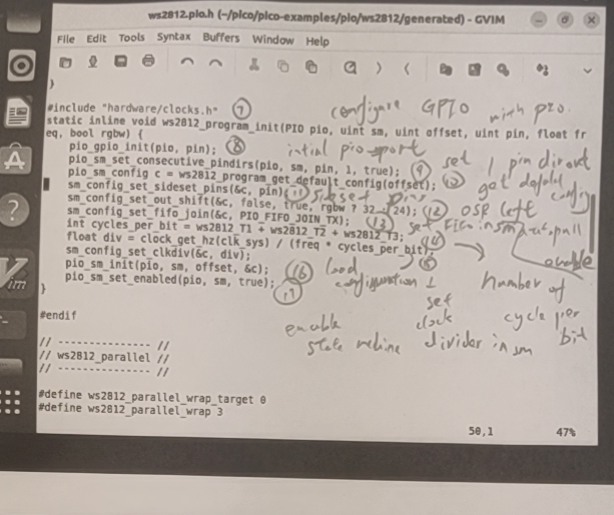 ws2812.pio.h (~/pico/pico-examples/pio/ws2812/generated) - GVIM
File Edit Tools Syntax Buffers Window Help
}
#include "hardware/clocks.h" 7 configure GPIO with pio.
static inline void ws2812_program_init(PIO pio, uint sm, uint offset, uint pin, float fr
eq, bool rgbw) {
pio_gpio_init(pio, pin); 8 intial pio port
pio_sm_set_consecutive_pindirs(pio, sm, pin, 1, true); 9 set 1 pin dir out
pio_sm_config c = ws2812_program_get_default_config(offset); 10 get default config
sm_config_set_sideset_pins(&c, pin); 11 sideset pins
sm_config_set_out_shift(&c, false, true, rgbw ? 32 : 24); 12 OSR left
sm_config_set_fifo_join(&c, PIO_FIFO_JOIN_TX); 13 set FIFO in sm autopull
int cycles_per_bit = ws2812_T1 + ws2812_T2 + ws2812_T3; 14 enable
float div = clock_get_hz(clk_sys) / (freq * cycles_per_bit);
sm_config_set_clkdiv(&c, div);
pio_sm_init(pio, sm, offset, &c); 16 load configuration
pio_sm_set_enabled(pio, sm, true); 17
}
number of
cycle per
bit
set
clock
divider in sm
enable
state machine
#endif
// --------------- //
// ws2812_parallel //
// --------------- //
#define ws2812_parallel_wrap_target 0
#define ws2812_parallel_wrap 3
50,1 47%